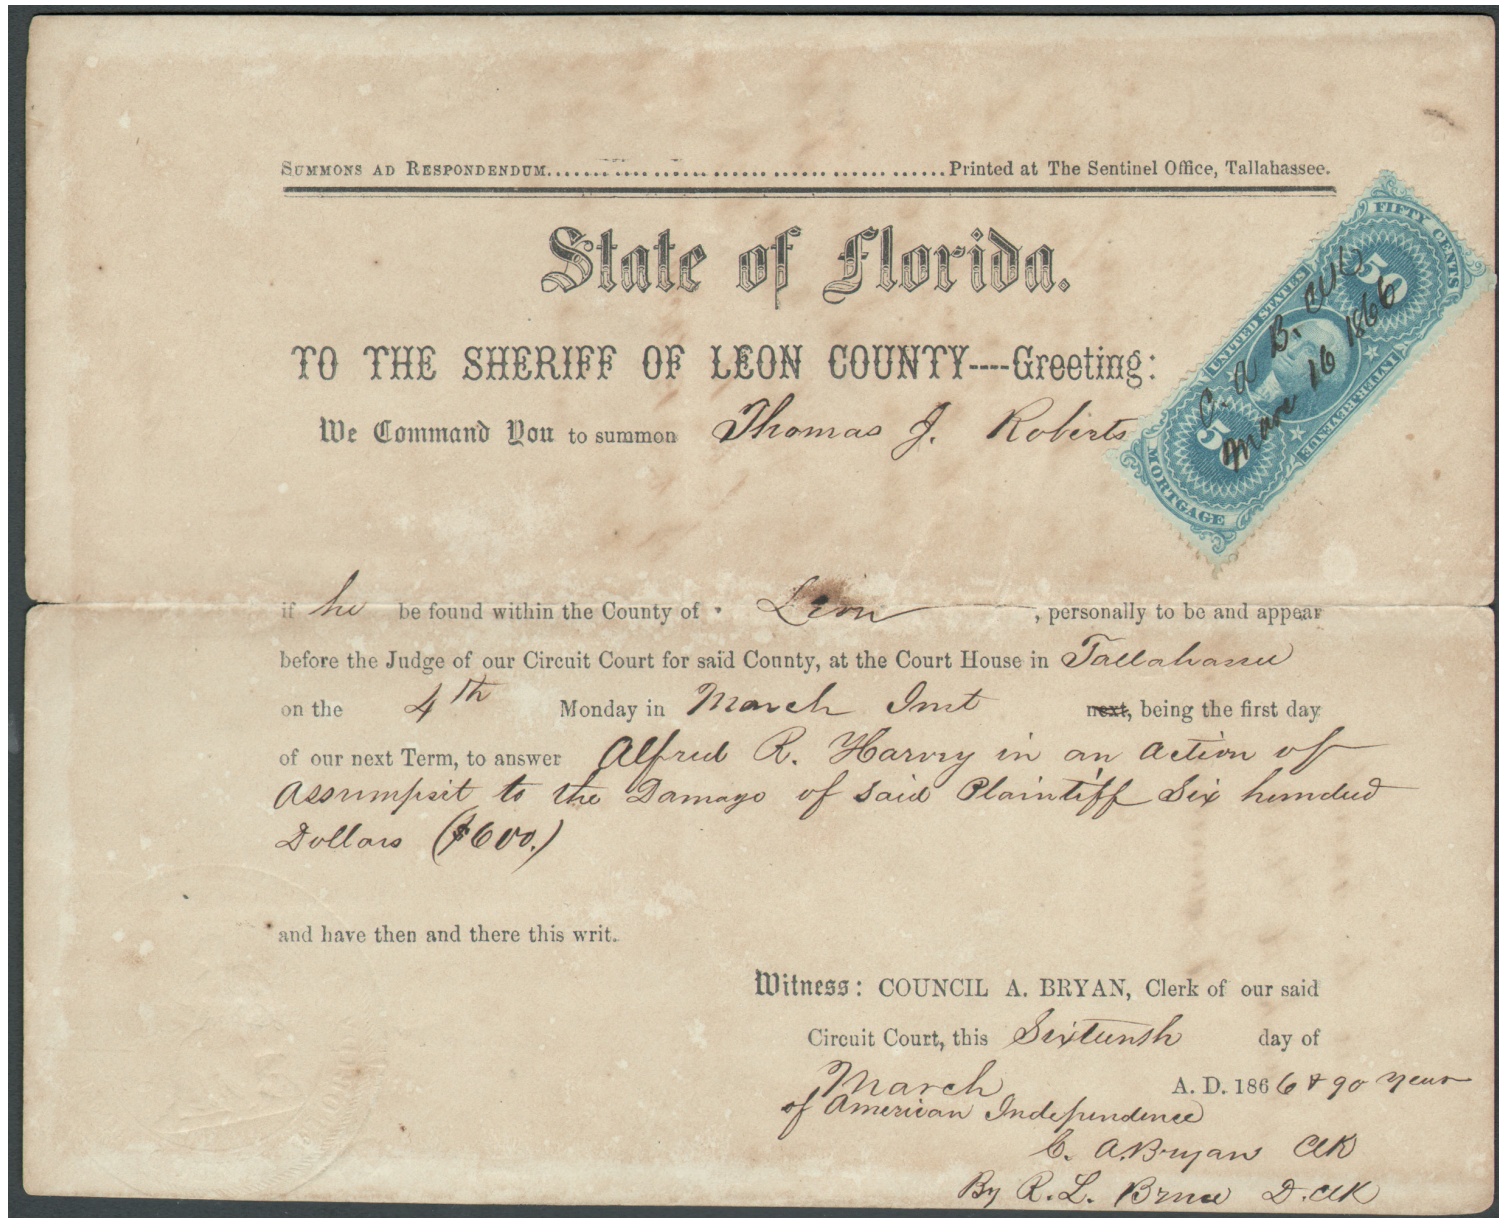 SUMMONS AD RESPONDENDUM........................................Printed at The Sentinel Office, Tallahassee.
State of Florida.
TO THE SHERIFF OF LEON COUNTY----Greeting:
We Command You to summon Thomas J. Roberts
FIFTY CENTS
50
UNITED STATES
INTER. REVENUE
50
MORTGAGE
C. A. B. Clk
Mar 16 1866
if he be found within the County of Leon, personally to be and appear
before the Judge of our Circuit Court for said County, at the Court House in Tallahassee
on the 4th Monday in March Inst next, being the first day
of our next Term, to answer Alfred R. Harvey in an action of
Assumpsit to the Damage of said Plaintiff Six hundred
Dollars ($600.)
and have then and there this writ.
Witness: COUNCIL A. BRYAN, Clerk of our said
Circuit Court, this Sixteenth day of
March A. D. 1866 & 90 year
of American Independence
C. A. Bryan Clk
By R. L. Bruce D. Clk